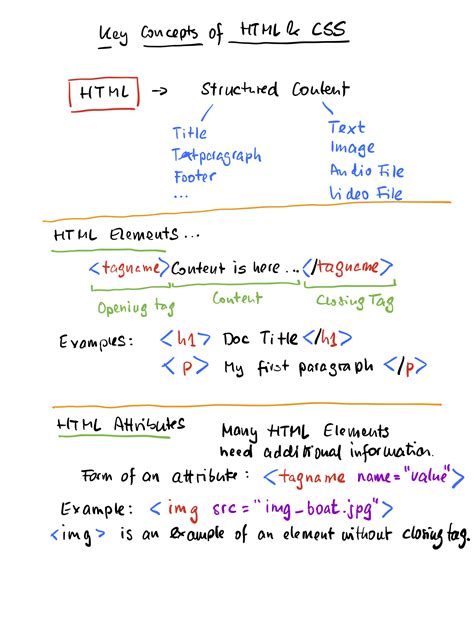 Key Concepts of HTML & CSS
HTML → Structured Content
Title
Textparagraph
Footer
...
Text
Image
Audio File
Video File
HTML Elements...
<tagname> Content is here ... </tagname>
Opening tag Content Closing Tag
Examples: <h1> Doc Title </h1>
<p> My first paragraph </p>
HTML Attributes
Many HTML Elements
need additional information.
Form of an attribute: <tagname name="value">
Example: <img src="img_boat.jpg">
<img> is an example of an element without closing tag.